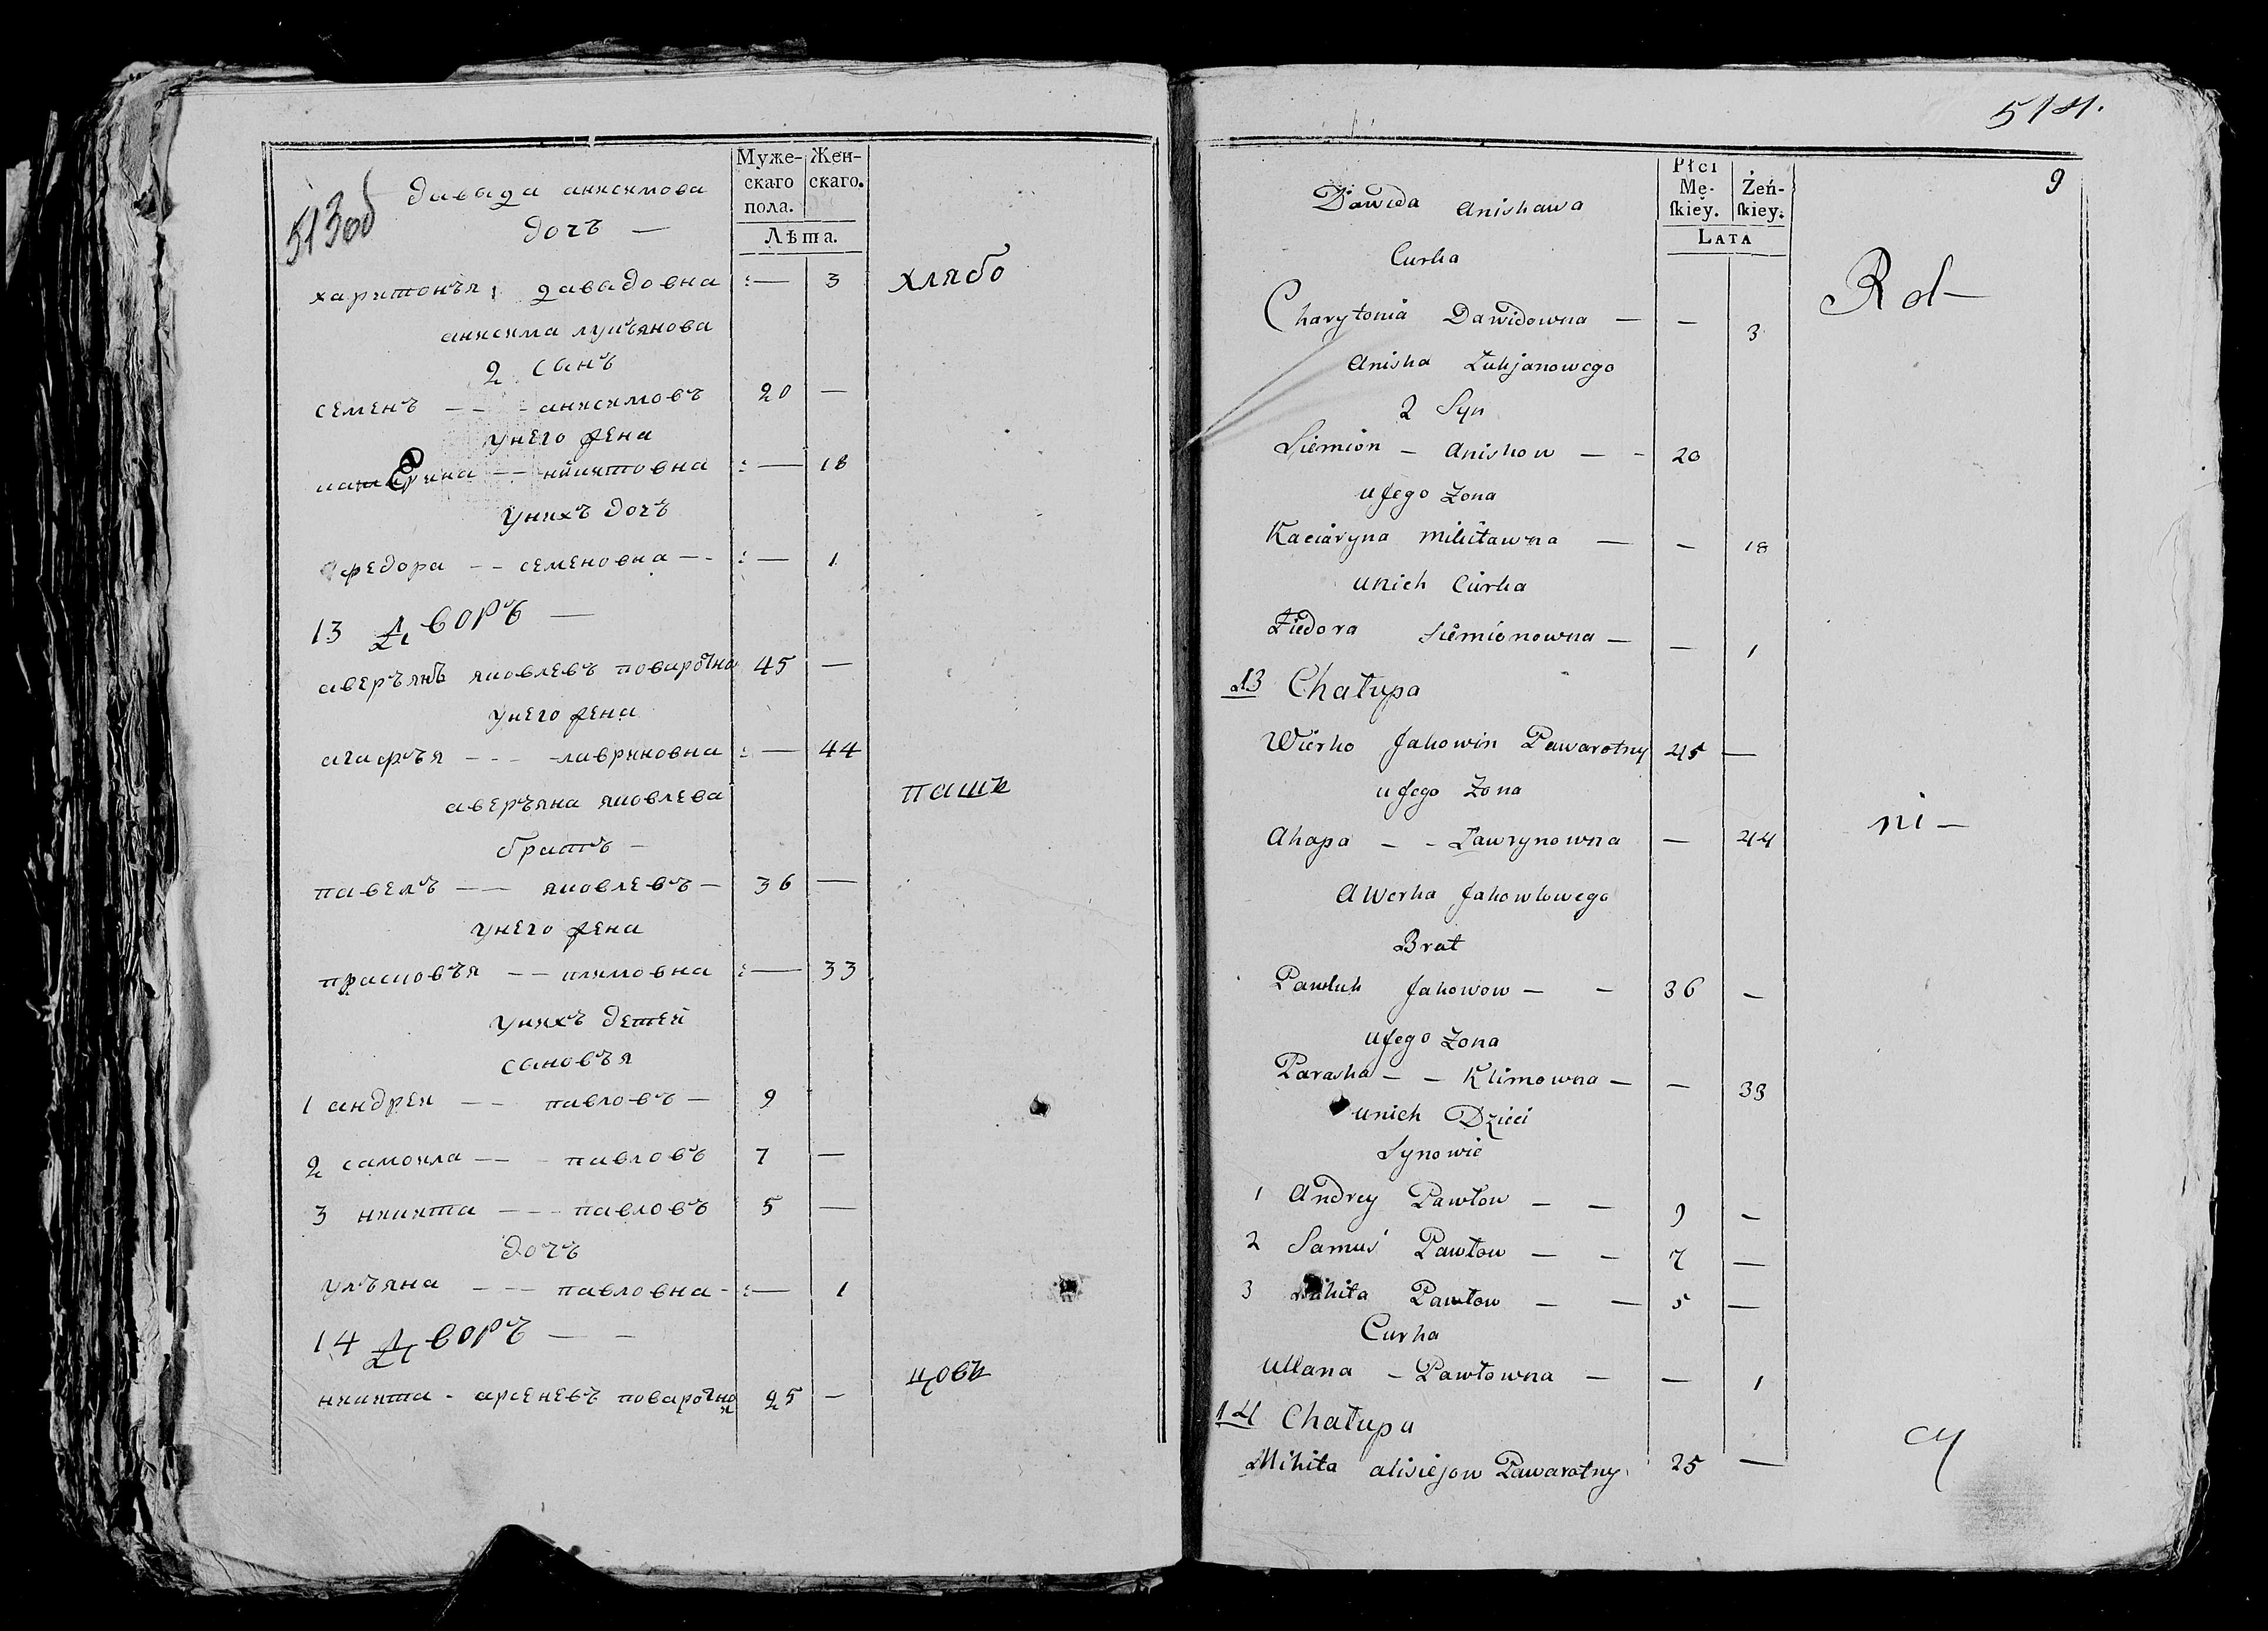 513об
Муже-
скаго
пола.
Жен-
скаго.
Лѣта.
давыда анисимова
дочь —
харитонья давыдовна :— 3 хлѣбо
анисима лукьянова
2 сынъ
семенъ — — анисимовъ 20 —
унего жена
катерина — — никитовна :— 18
унихъ дочь
федора — — семеновна — - :— 1
13 Дворъ —
аверьянъ яковлевъ поваротно 45 —
унего жена
агафья - - - лавриновна :— 44
аверьяна яковлева пашк
братъ —
павелъ — — яковлевъ — 36 —
унего жена
прасковья — — климовна :— 33
унихъ детей
сыновья
1 андреи — — павловъ — 9
2 самоила — — павловъ 7 —
3 никита — — павловъ 5 —
дочь
ульяна — — павловна - :— 1
14 Дворъ — —
никита - арсеневъ поваротно 25 — цовъ
514.
9
Płci
Mę-
ſkiey.
Żeń-
ſkiey.
Lata
Dawida Anishawa
Curka Rol—
Charytonia Dawidowna — — 3
Aniska Łukjanowego
2 Syn
Siemion — Aniskow — - 20
uJego Zona
Kaciaryna Mikitawna — — 18
unich Curka
Fiedora Siemionowna — — 1
13 Chałupa
Wierko Jakowin Pawarotny 45 —
uJego Zona
Ahapa — - Ławrynowna — 44 ni —
Awerka Jakowlowego
Brat
Pawluk Jakowow — — 36 —
uJego Zona
Paraska — — Klimowna — — 33
unich Dzieci
Synowie
1 Andrey Pawłow — — 9 —
2 Samuś Pawłow — — 7 —
3 Mikita Pawłow — — 5 —
Curka
Ullana — Pawłowna — — 1
14 Chałupa
Mikita Alisiejow Pawarotny 25 — cy